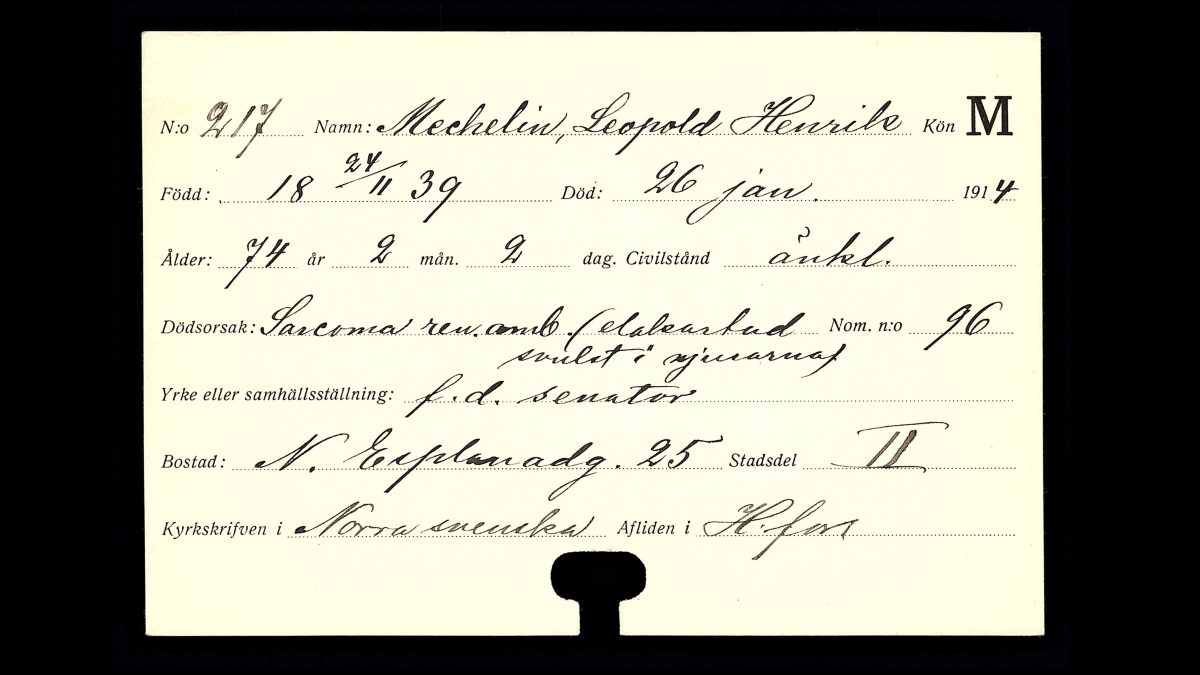 N:o 217 Namn: Mechelin, Leopold Henrik Kön M
Född: 18 24/11 39 Död: 26 jan. 1914
Ålder: 74 år 2 mån. 2 dag. Civilstånd änkl.
Dödsorsak: Sarcoma ren. amb. (elakartad Nom. n:o 96
svulst i njurarna)
Yrke eller samhällsställning: f.d. senator
Bostad: N. Esplanadg. 25 Stadsdel II
Kyrkskrifven i Norra svenska Afliden i H.fors